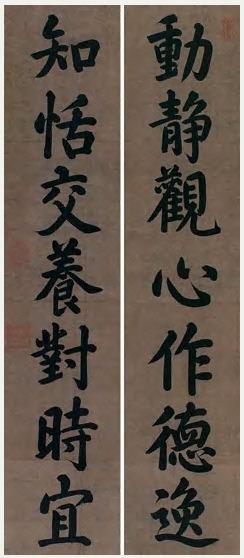 動靜觀心作德逸
知恬交養對時宜